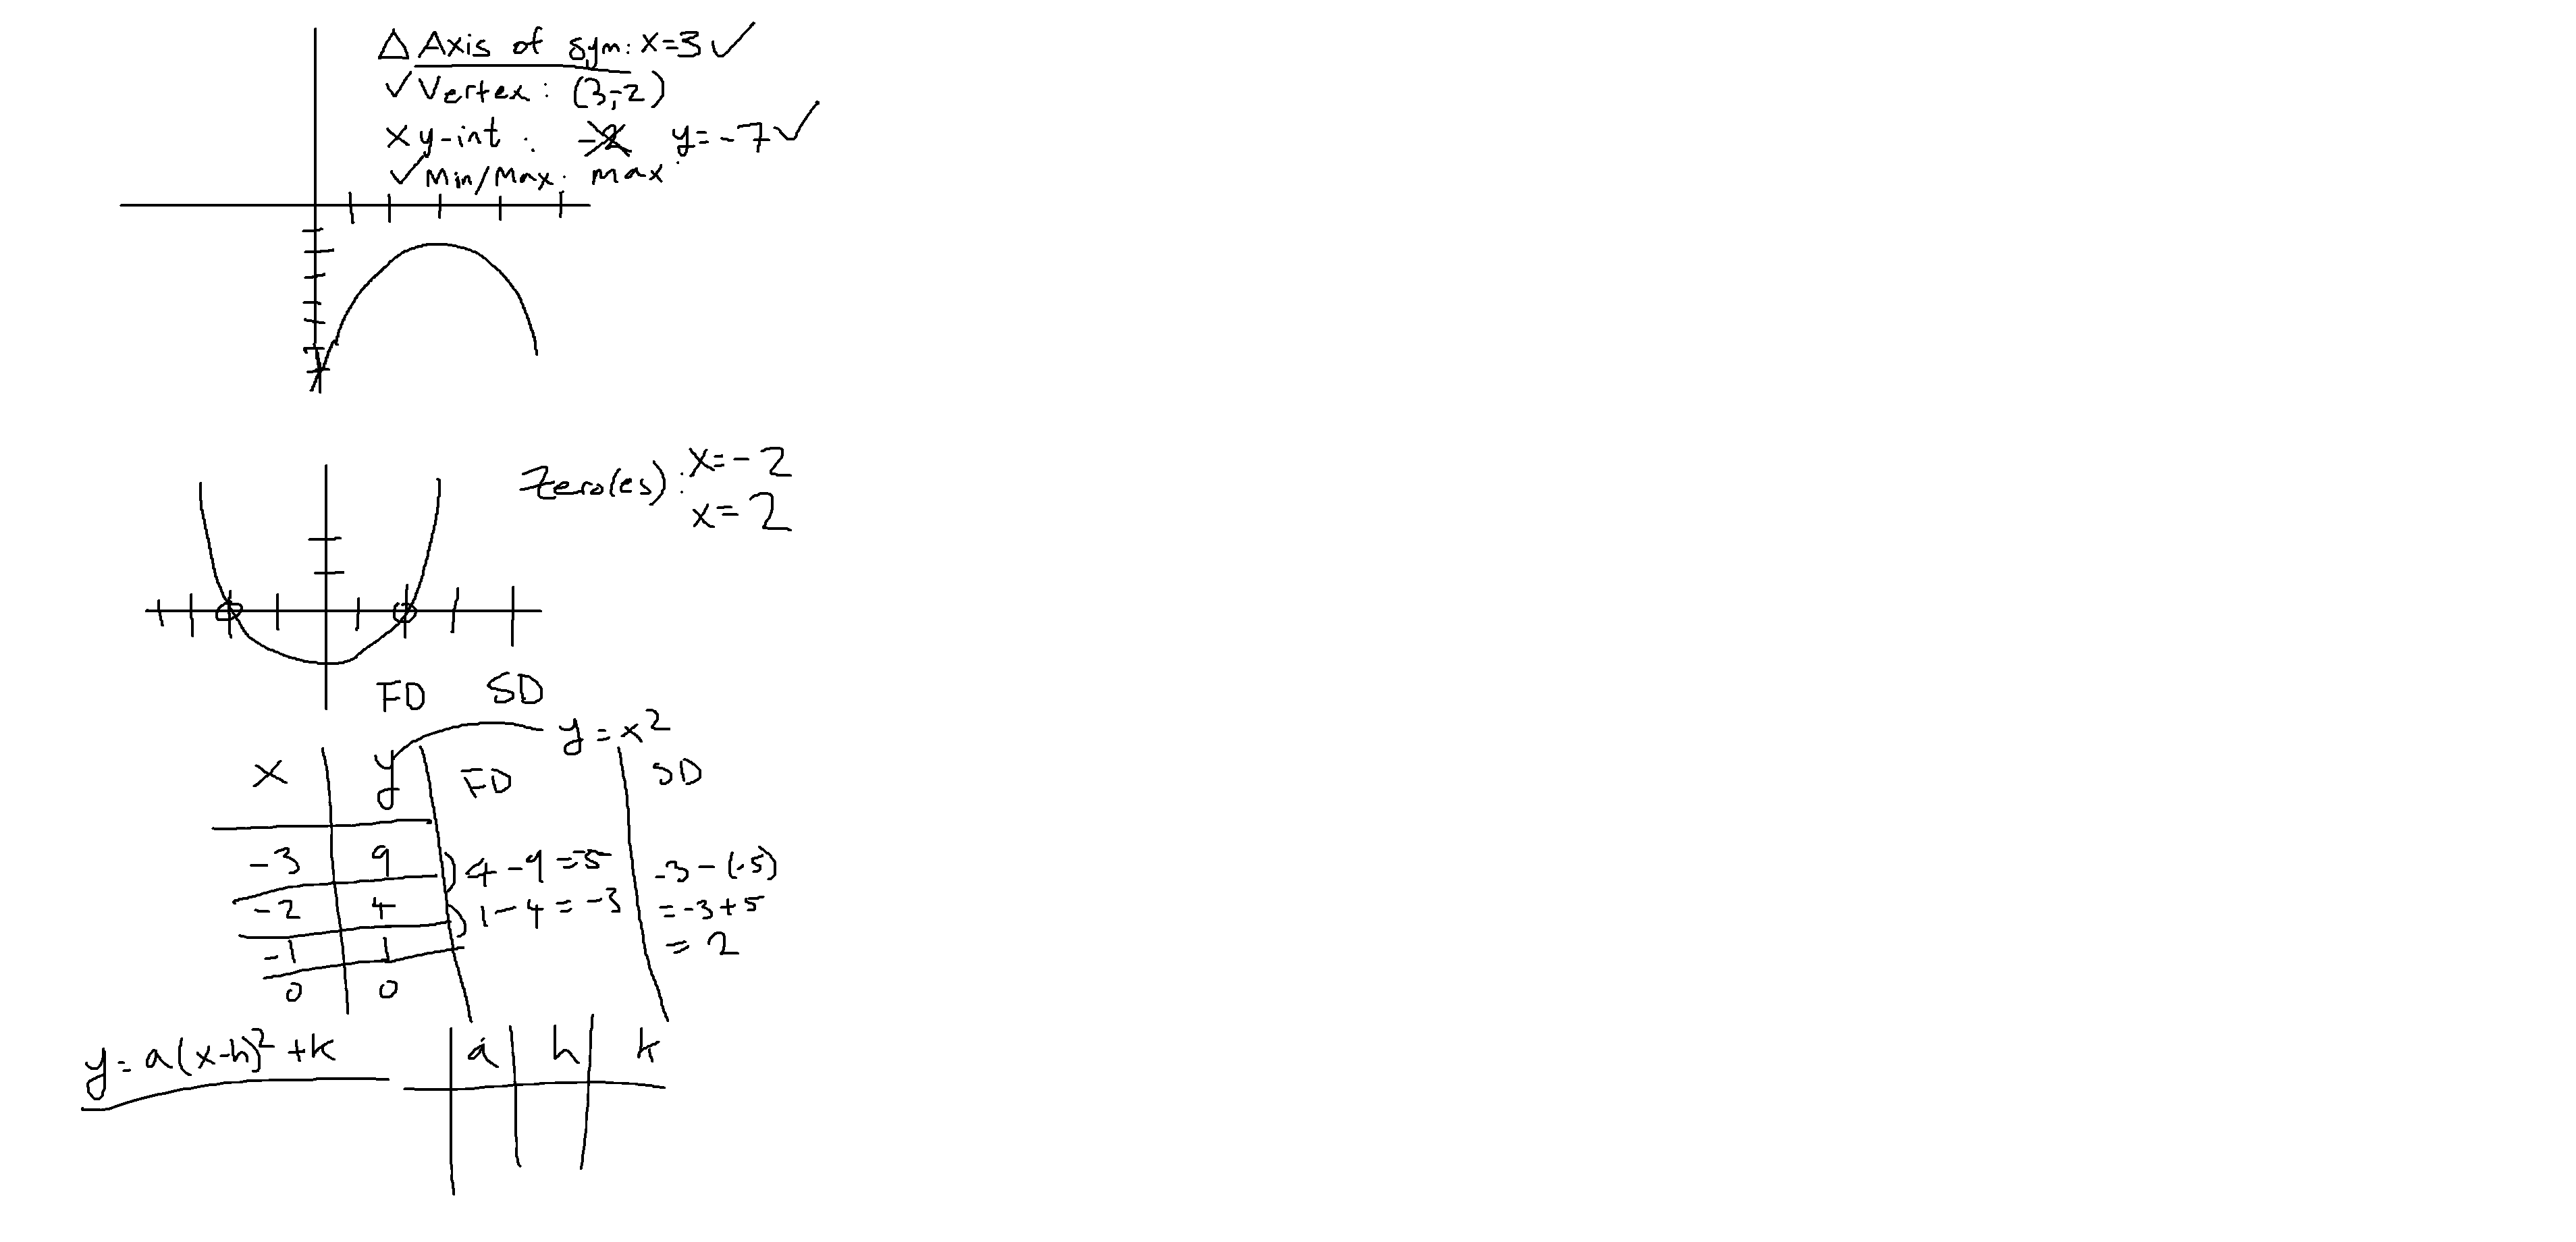 △ Axis of sym: x=3 ✓
✓ Vertex: (3,-2)
x y-int : -2 y=-7 ✓
✓ Min/Max: max
Zero(es): x=-2
x=2
FD SD
y=x²
x y FD SD
-3 9 4-9=-5 -3-(-5)
-2 4 1-4=-3 =-3+5
-1 1 =2
0 0
y=a(x-h)²+k a h k